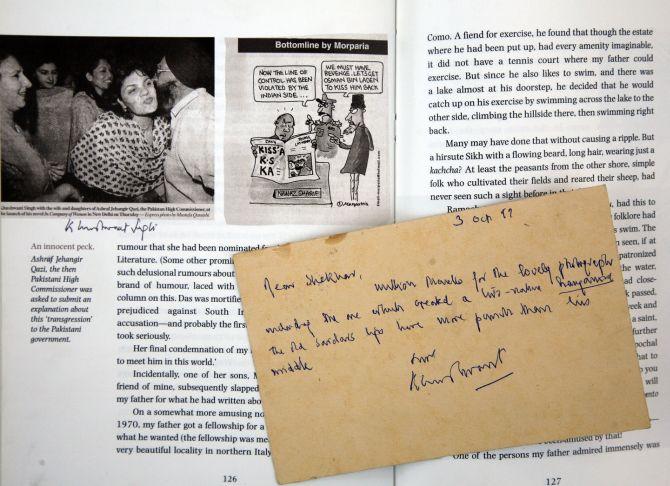 Bottomline by Morparia
NOW THE LINE OF
CONTROL HAS BEEN
VIOLATED BY THE
INDIAN SIDE....
WE MUST HAVE
REVENGE. LET'S GET
OSMAN BIN LADEN
TO KISS HIM BACK
KISS'A
K.S
KA
NAWAZ SHARIF
Khushwant Singh with the wife and daughters of Ashraf Jehangir Qazi, the Pakistan High
Commissioner, at the launch of his novel In Company of Women in New Delhi on Thursday — Express photo by Mustafa Quraishi
Khushwant Singh
An innocent peck.
Ashraf Jehangir
Qazi, the then
Pakistani High
Commissioner was
asked to submit an
explanation about
this 'transgression'
to the Pakistani
government.
rumour that she had been nominated
Literature. (Some other promi
such delusional rumours about
brand of humour, laced with
column on this). Das was mortified
prejudiced against South I
accusation—and probably the first
took seriously.
Her final condemnation of my
to meet him in this world.'
Incidentally, one of her sons, M
friend of mine, subsequently slapped
my father for what he had written abou
On a somewhat more amusing no
1970, my father got a fellowship for a
what he wanted (the fellowship was me
very beautiful locality in northern Italy
126
Como. A fiend for exercise, he found that though the estate
where he had been put up, had every amenity imaginable,
it did not have a tennis court where my father could
exercise. But since he also likes to swim, and there was
a lake almost at his doorstep, he decided that he would
catch up on his exercise by swimming across the lake to the
other side, climbing the hillside there, then swimming right
back.
Many may have done that without causing a ripple. But
a hirsute Sikh with a flowing beard, long hair, wearing just a
kachcha? At least the peasants from the other shore, simple
folk who cultivated their fields and reared their sheep, had
never seen such a sight before in
had this to
folklore had
swim. The
seen, if at
patronized
the water.
had close-
passed.
week and
a saint,
further
to
you
will
3 Oct
Dear Shekhar,
million thanks for the lovely photograph
the one which created a
the old sardar's lips have more punch than his
middle
Khushwant
amused by that!
One of the persons my father admired immensely was
127